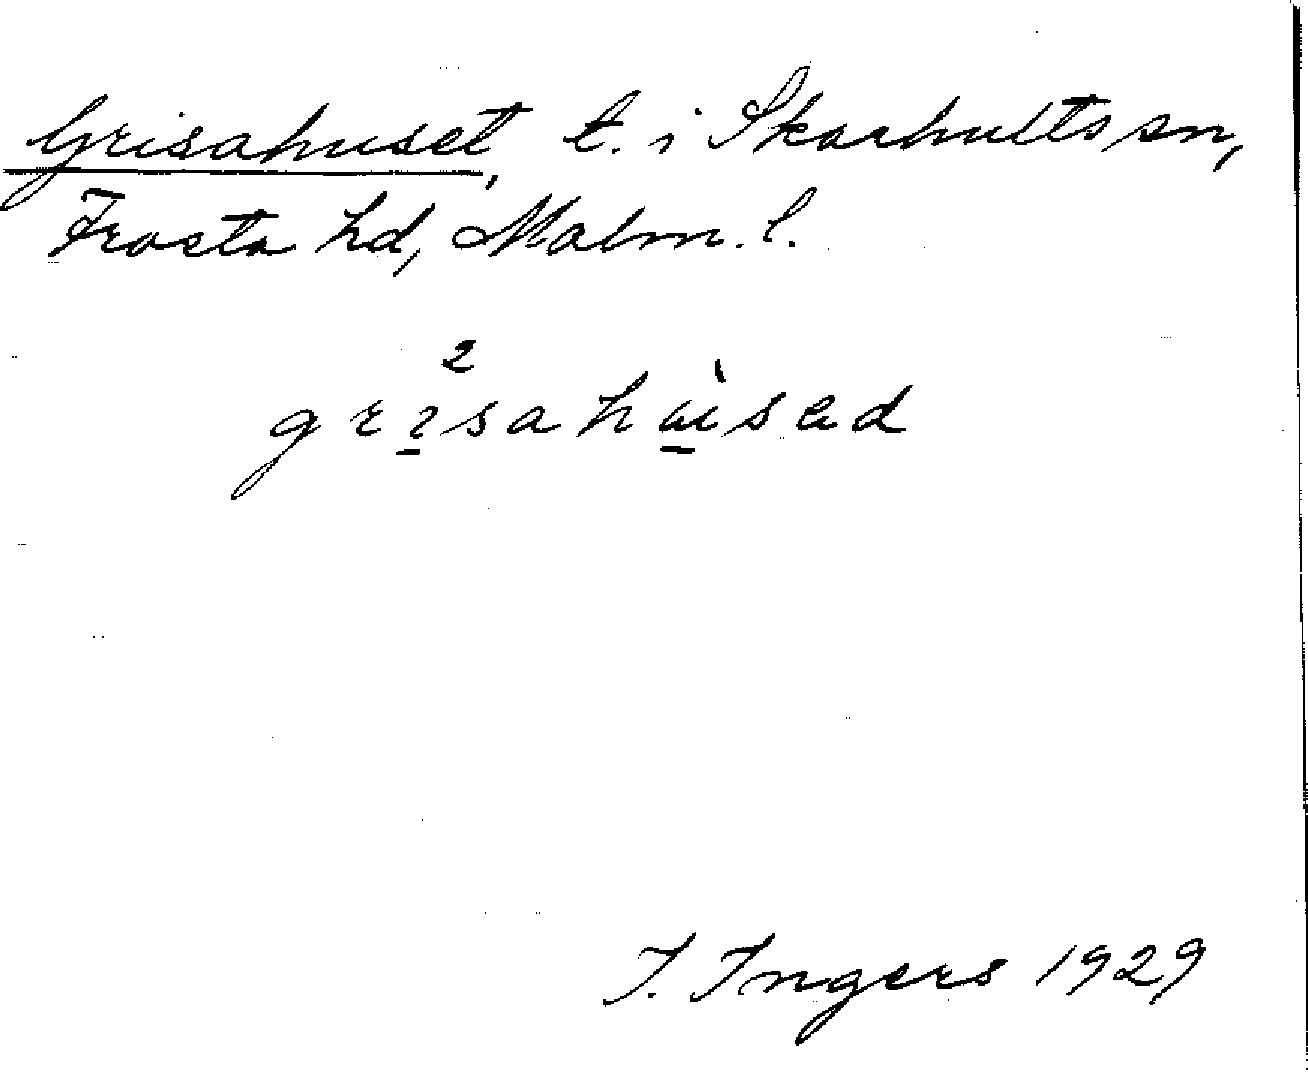 Grisahuset, t. i Skarhults sn,
Frosta hd, Malm. l.
I. Ingers 1929